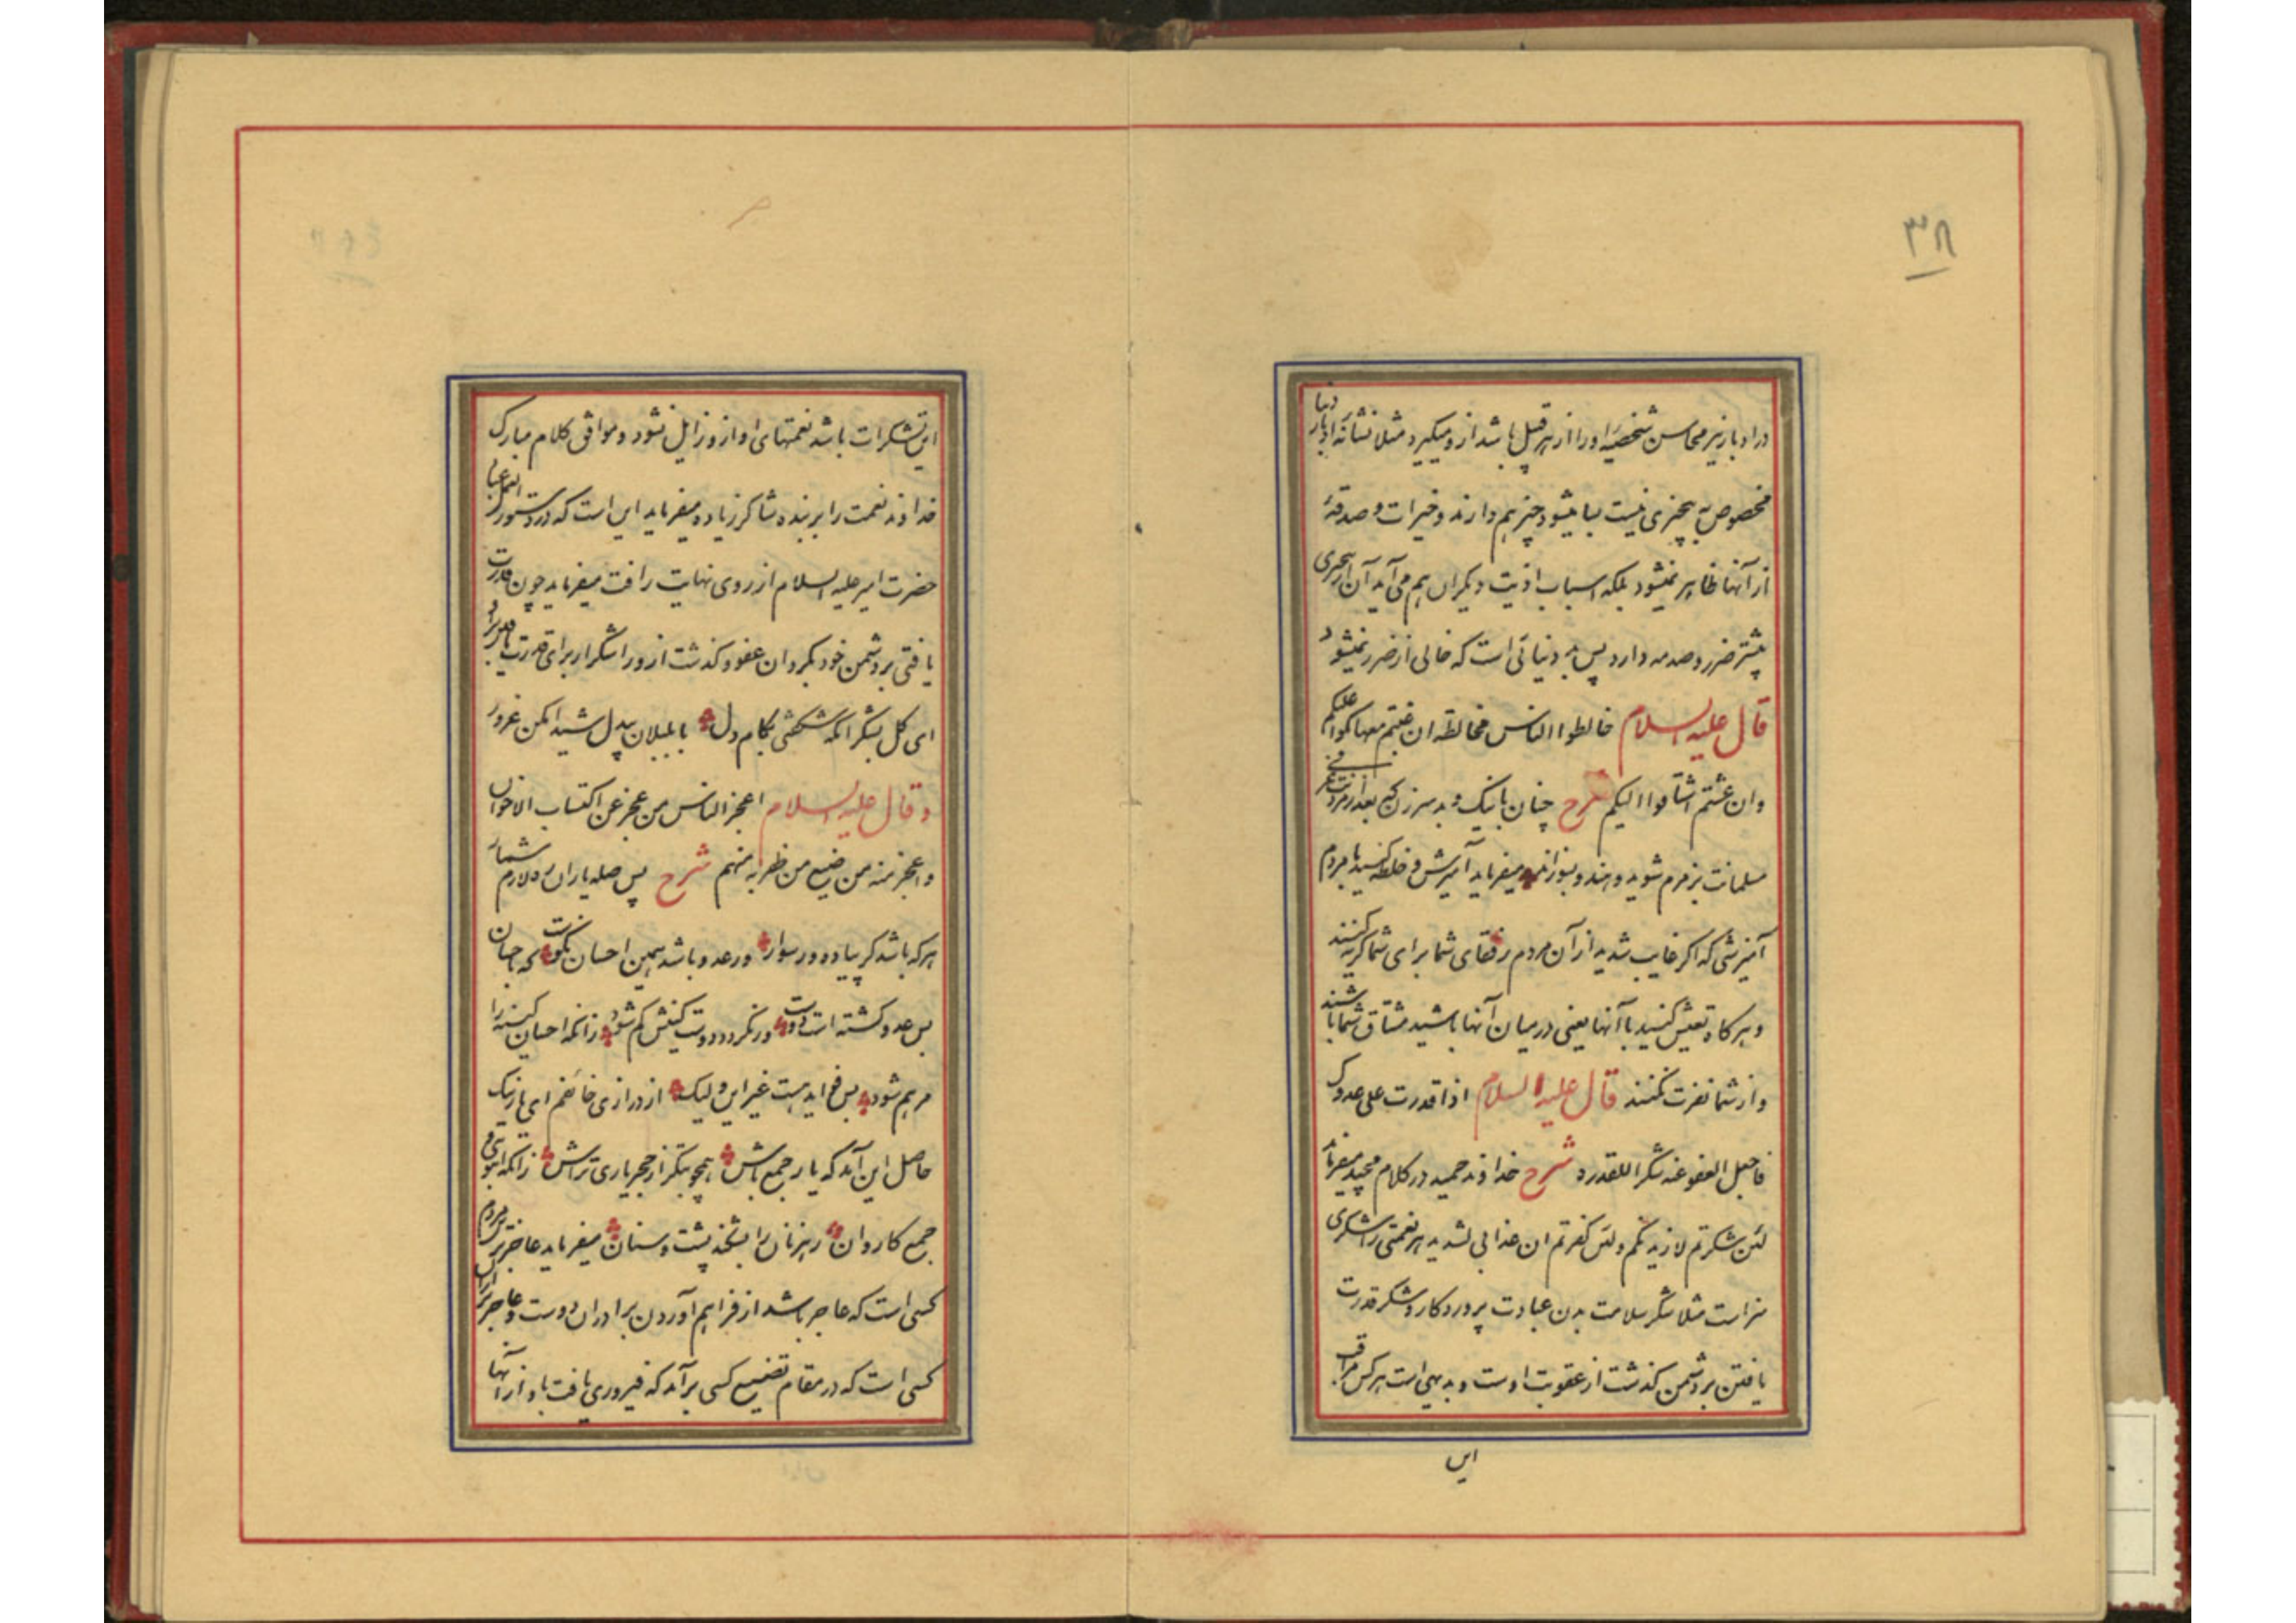 ۳۸
در ادبار نیز محاسن شخصیه او را از هر قبیل باشد از و میگیرد مثلا نشانه ادبار دنیا
مخصوص به بیچیزی نیست بسا میشود چیز هم دارند و خیرات و صدقهٔ
از آنها ظاهر نمیشود بلکه اسباب اذیت دیگران هم می آید آن از بیچیزی
بیشتر ضرر و صدمه دارد پس به دنیائی است که خالی از ضرر نمیشود
قال علیه السلام خالطوا الناس مخالطة ان متم معها بکوا علیکم
وان عشتم اشتاقوا الیکم شرح چنان با نیک و بد سر کن که بعد از مردنت عرفی
مسلمانت بزمزم شوید و هندو بسوزاند میفرماید آمیزش و خلطه کنید با مردم
آمیزشی که اگر غایب شدید از آن مردم رفقای شما برای شما گریه کنند
و هر کاه تعیش کنید با آنها یعنی در میان آنها باشید مشتاق شما باشند
و از شما نفرت نکنند قال علیه السلام اذا قدرت علی عدوک
فاجعل العفو عنه شکرا للقدرة شرح خداوند حمید در کلام مجید میفرماید
لئن شکرتم لازیدنکم ولئن کفرتم ان عذابی لشدید هر نعمتی را شکری
سزاست مثلا شکر سلامت بدن عبادت پروردکار و شکر قدرت
یافتن بر دشمن کذشت از عقوبت اوست و بدیهی است هر کس مراقب
این
این تشکرات باشد نعمتهای او از و زایل نشود و موافق کلام مبارک
خداوند نعمت را بر بنده شاکر زیاده میفرماید این است که در دستور العمل عباد
حضرت امیر علیه السلام از روی نهایت رافت میفرماید چون قدرت
یافتی بر دشمن خود بکردان عفو و کذشت از و را شکرا برای قدرت یافتن بر او
ای کل بشکر آنکه شکفتی بکام دل با بلبلان بیدل شیدا مکن غرور
و قال علیه السلام اعجز الناس من عجز عن اکتساب الاخوان
واعجز منه من ضیع من ظفر به منهم شرح پس صله یاران ره لازم شمار
هر که باشد کر پیاده ور سوار ور عدو باشد همین احسان نکوست که باحسان
بس عدو کشته است دوست ور نکردد دوست کینش کم شود زانکه احسان کینه را
مرهم شود بس فواید هست غیر این ولیک از درازی خائفم ای یار نیک
حاصل این آمد که یار جمع باش همچو بتکر از حجر یاری تراش زانکه انبوهی و
جمع کاروان رهزنان را بشکند پشت و سنان میفرماید عاجزترین مردم
کسی است که عاجز باشد از فراهم آوردن برادران دوست و عاجزتر از آن
کسی است که در مقام تضییع کسی برآید که فیروزی یافت باو از آنها